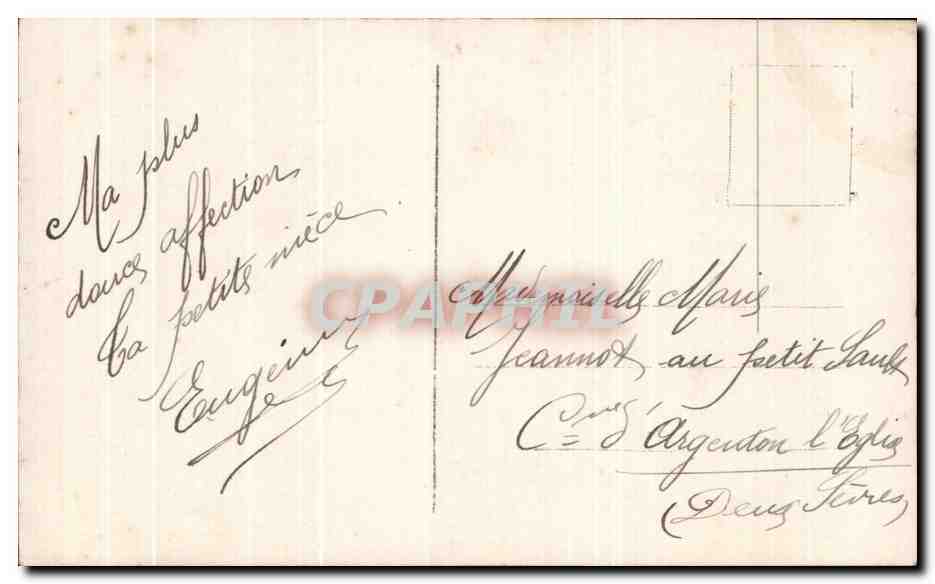 Ma plus
douce affection
Ta petite nièce
Eugénie
CPAPHIL
Mademoiselle Marie
Jeannot au petit Sault
Cne d'Argenton l'Eglise
(Deux Sèvres)